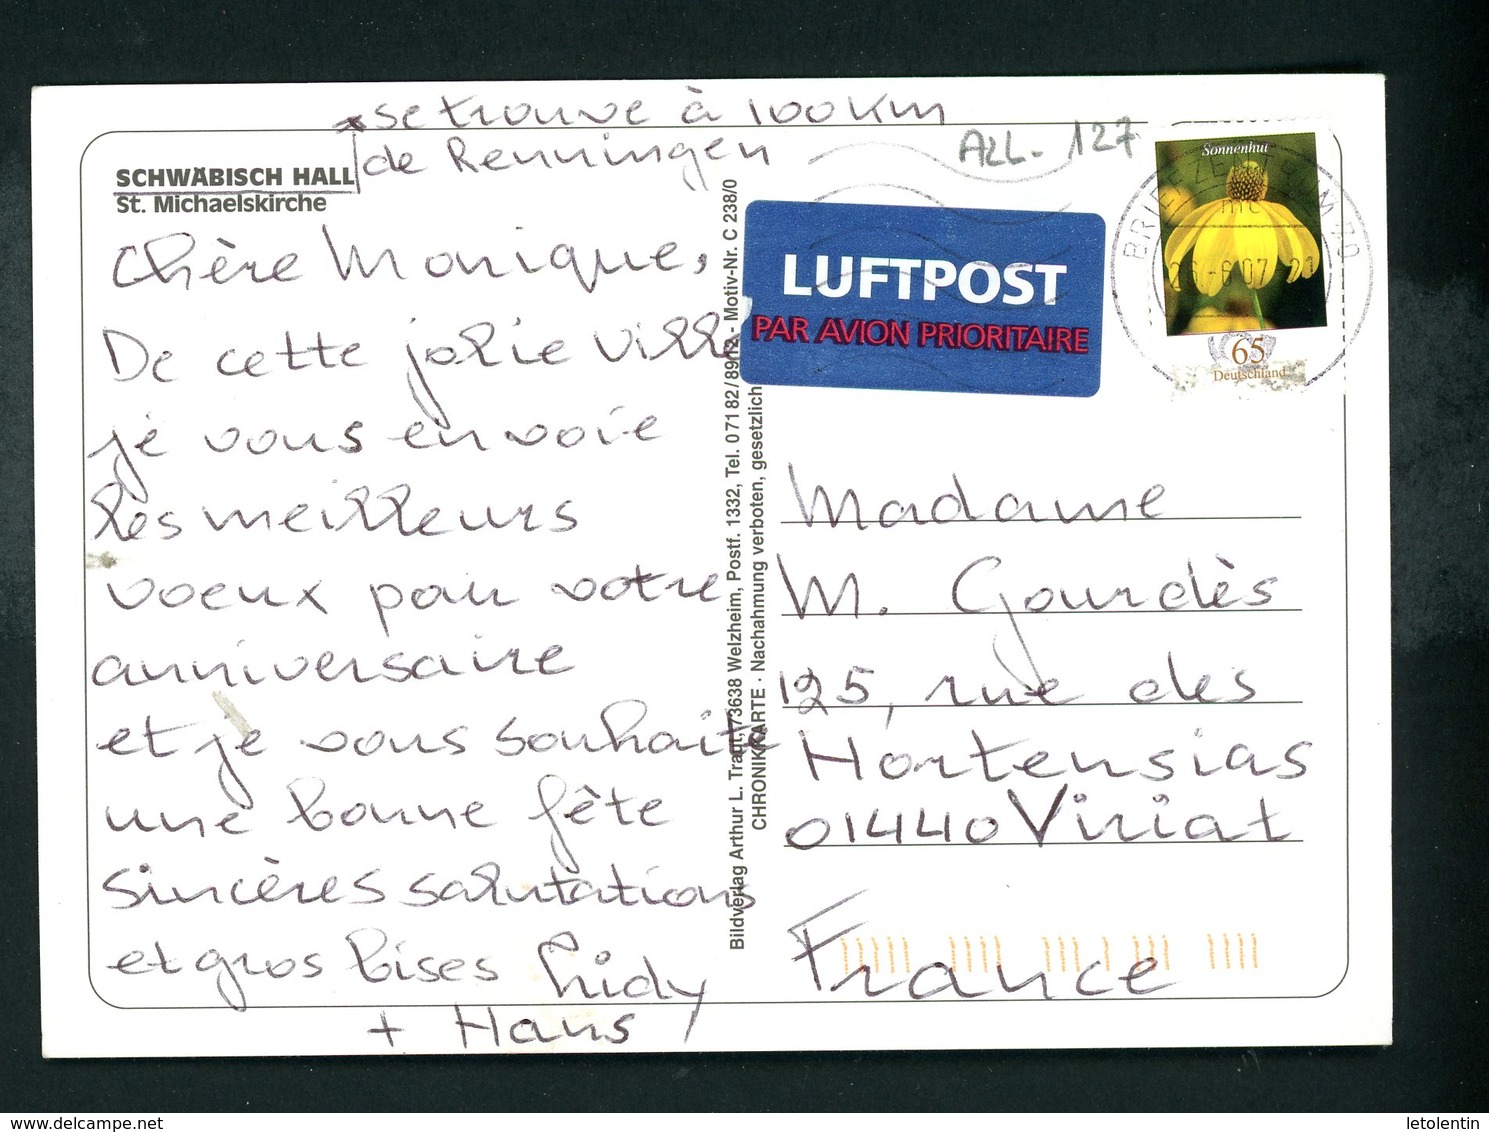 *se trouve à 100 Km
de Renningen
All. 127
SCHWÄBISCH HALL
St. Michaelskirche
Chère Monique,
De cette jolie ville
je vous envoie
les meilleurs
voeux pour votre
anniversaire
et je vous souhaite
une bonne fête
sincères salutations
et gros bises
+ Hans
Bildverlag Arthur L. Traut, 73638 Welzheim, Postf. 1332, Tel. 07182/8912 - Motiv-Nr. C 238/0
CHRONIKKARTE · Nachahmung verboten, gesetzlich
LUFTPOST
PAR AVION PRIORITAIRE
Sonnenhut
65
Deutschland
BRIEFZENTRUM 70
mc
26.-6.07-21
Madame
M. Gourdès
125, rue des
Hortensias
01440 Viriat
France
www.delcampe.net
letolentin